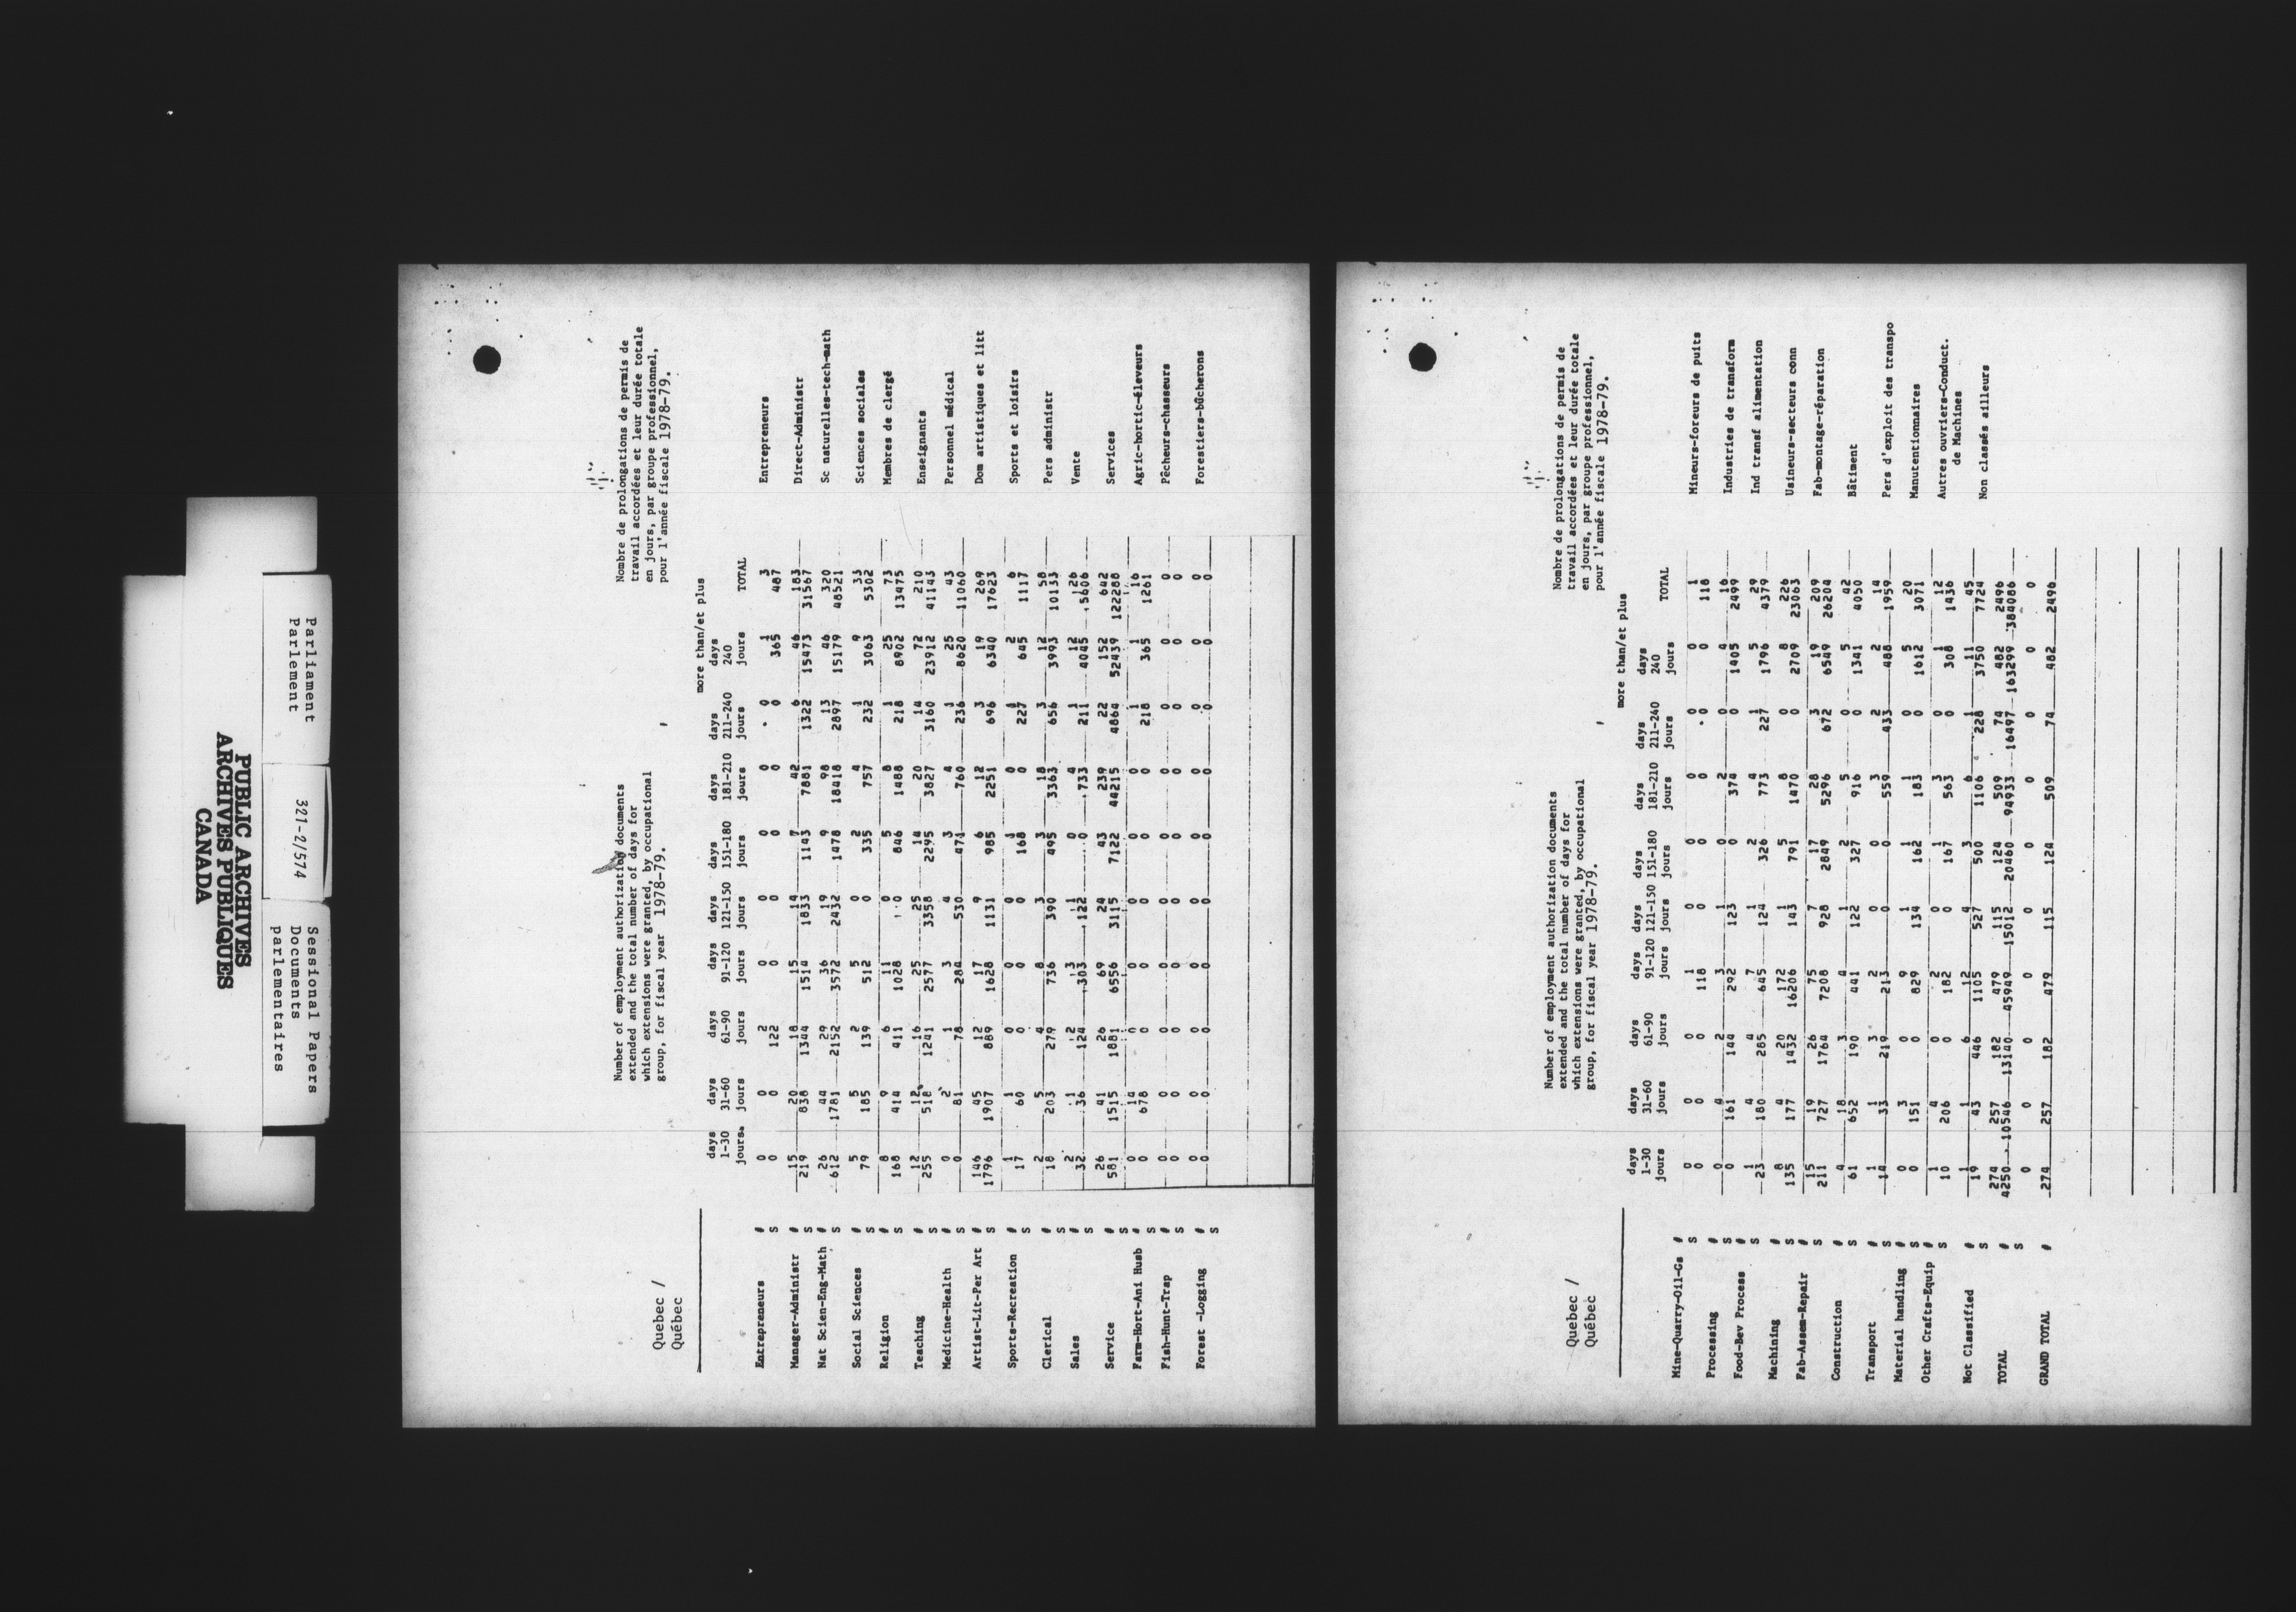 PUBLIC ARCHIVES
ARCHIVES PUBLIQUES
CANADA
Parliament
Parlement
321-2/574
Sessional Papers
Documents
parlementaires
Quebec /
Québec
Number of employment authorization documents
extended and the total number of days for
which extensions were granted, by occupational
group, for fiscal year 1978-79.
Nombre de prolongations de permis de
travail accordées et leur durée totale
en jours, par groupe professionnel,
pour l'année fiscale 1978-79.
more than/et plus
days days days days days days days days days
1-30 31-60 61-90 91-120 121-150 151-180 181-210 211-240 240 TOTAL
jours. jours jours jours jours jours jours jours jours
Entrepreneurs # 0 0 2 0 0 0 0 0 1 3 Entrepreneurs
S 0 0 122 0 0 0 0 0 365 487
Manager-Administr # 15 20 18 15 14 7 42 6 46 183 Direct-Administr
S 219 838 1344 1514 1833 1143 7881 1322 15473 31567
Nat Scien-Eng-Math # 26 44 29 36 19 9 98 13 46 320 Sc naturelles-tech-math
S 612 1781 2152 3572 2432 1478 18418 2897 15179 48521
Social Sciences # 5 5 2 5 0 2 4 1 9 33 Sciences sociales
S 79 185 139 512 0 335 757 232 3063 5302
Religion # 8 9 6 11 0 5 8 1 25 73 Membres de clergé
S 168 414 411 1028 0 846 1488 218 8902 13475
Teaching # 12 12 16 25 25 14 20 14 72 210 Enseignants
S 255 518 1241 2577 3358 2295 3827 3160 23912 41143
Medicine-Health # 0 2 1 3 4 3 4 1 25 43 Personnel médical
S 0 81 78 284 530 471 760 236 8620 11060
Artist-Lit-Per Art # 146 45 12 17 9 6 12 3 19 269 Dom artistiques et litt
S 1796 1907 889 1628 1131 985 2251 696 6340 17623
Sports-Recreation # 1 1 0 0 0 1 0 1 2 6 Sports et loisirs
S 17 60 0 0 0 168 0 227 645 1117
Clerical # 2 5 4 8 3 3 18 3 12 58 Pers administr
S 18 203 279 736 390 495 3363 656 3993 10133
Sales # 2 1 2 3 1 0 4 1 12 26 Vente
S 32 36 124 303 122 0 733 211 4045 5606
Service # 26 41 26 69 24 43 239 22 152 642 Services
S 581 1515 1881 6556 3115 7122 44215 4864 52439 122288
Farm-Hort-Ani Husb # 0 14 0 0 0 0 0 1 1 16 Agric-hortic-éleveurs
S 0 678 0 0 0 0 0 218 365 1261
Fish-Hunt-Trap # 0 0 0 0 0 0 0 0 0 0 Pêcheurs-chasseurs
S 0 0 0 0 0 0 0 0 0 0
Forest -Logging # 0 0 0 0 0 0 0 0 0 0 Forestiers-bûcherons
S 0 0 0 0 0 0 0 0 0 0
Quebec /
Québec
Number of employment authorization documents
extended and the total number of days for
which extensions were granted, by occupational
group, for fiscal year 1978-79.
Nombre de prolongations de permis de
travail accordées et leur durée totale
en jours, par groupe professionnel,
pour l'année fiscale 1978-79.
more than/et plus
days days days days days days days days days
1-30 31-60 61-90 91-120 121-150 151-180 181-210 211-240 240 TOTAL
jours jours jours jours jours jours jours jours jours
Mine-Quarry-Oil-Gs # 0 0 0 1 0 0 0 0 0 1 Mineurs-foreurs de puits
S 0 0 0 118 0 0 0 0 0 118
Processing # 0 4 2 3 1 0 2 0 4 16 Industries de transform
S 0 161 144 292 123 0 374 0 1405 2499
Food-Bev Process # 1 4 4 7 1 2 4 1 5 29 Ind transf alimentation
S 23 180 285 645 124 326 773 227 1796 4379
Machining # 8 4 20 172 1 5 8 0 8 226 Usineurs-secteurs conn
S 135 177 1432 16206 143 791 1470 0 2709 23063
Fab-Assem-Repair # 15 19 26 75 7 17 28 3 19 209 Fab-montage-réparation
S 211 727 1764 7208 928 2849 5296 672 6549 26204
Construction # 4 18 3 4 1 2 5 0 5 42 Bâtiment
S 61 652 190 441 122 327 916 0 1341 4050
Transport # 1 1 3 2 0 0 3 2 2 14 Pers d'exploit des transpo
S 14 33 219 213 0 0 559 433 488 1959
Material handling # 0 3 0 9 1 1 1 0 5 20 Manutentionnaires
S 0 151 0 829 134 162 183 0 1612 3071
Other Crafts-Equip # 1 4 0 2 0 1 3 0 1 12 Autres ouvriers-Conduct.
S 10 206 0 182 0 167 563 0 308 1436 de Machines
Not Classified # 1 1 6 12 4 3 6 1 11 45 Non classés ailleurs
S 19 43 446 1105 527 500 1106 228 3750 7724
TOTAL # 274 257 182 479 115 124 509 74 482 2496
S 4250 10546 13140 45949 15012 20460 94933 16497 163299 384086
0 0 0 0 0 0 0 0 0 0
GRAND TOTAL # 274 257 182 479 115 124 509 74 482 2496